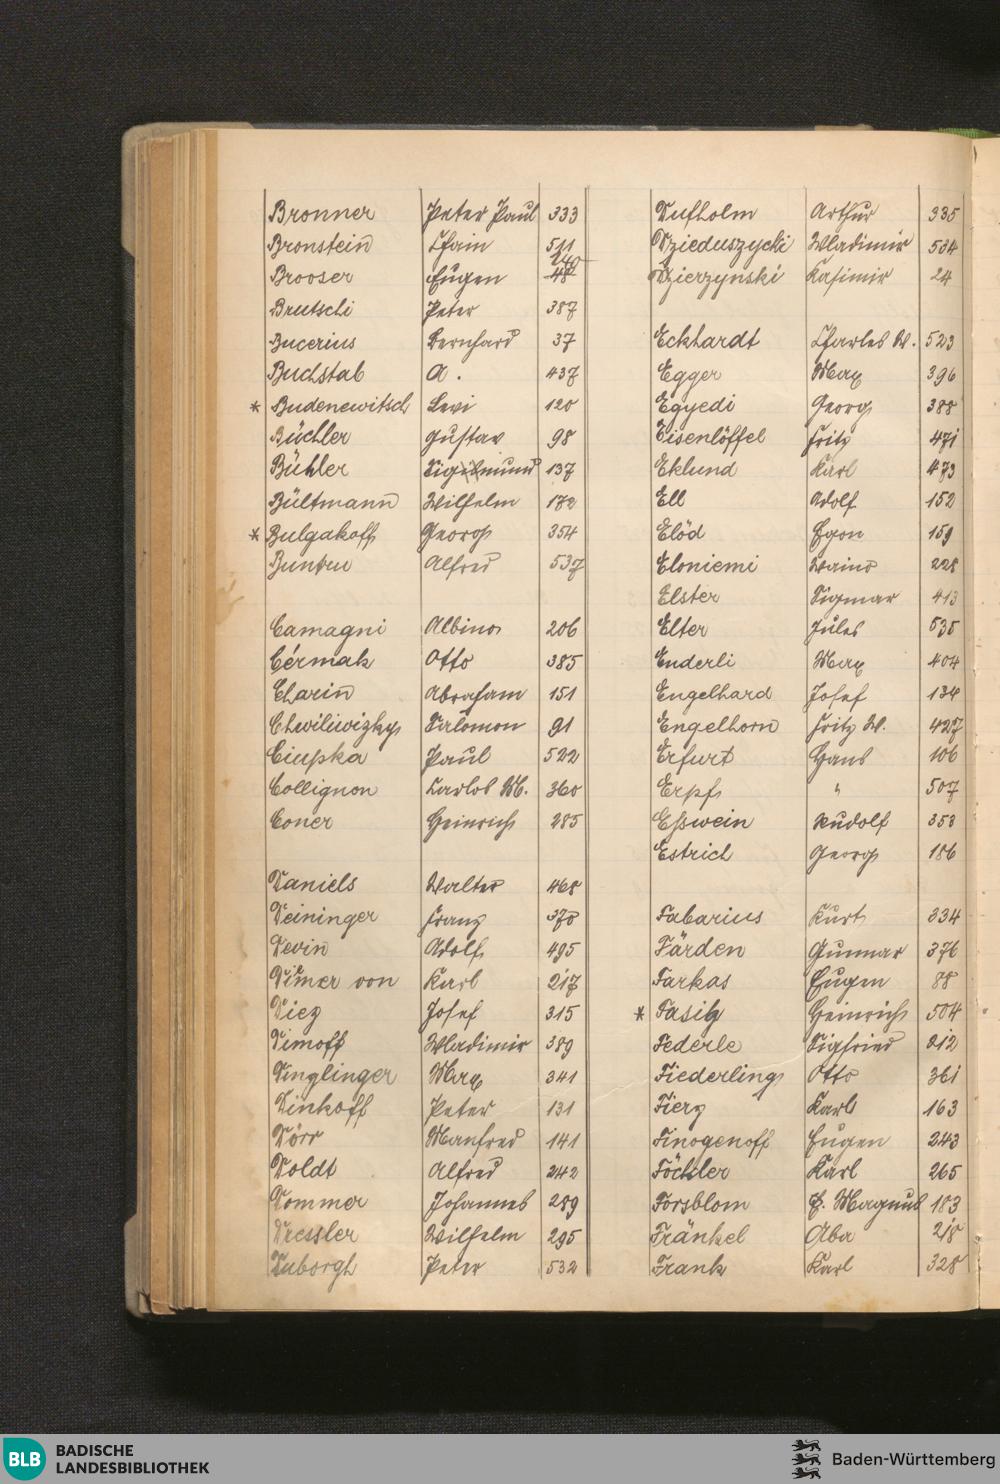 Bronner Peter Paul 333
Bronstein Chain 511
Brooser Eugen 240
Brutschi Peter 387
Bucerius Bernhard 37
Buchstab A. 437
* Budenewitsch Levi 120
Büchler Gustav 98
Bühler Sigismund 137
Bültmann Wilhelm 172
* Bulgakoff Georg 354
Alfred 537
Camagni Albino 206
Cérmak Otto 385
Charin Abraham 151
Chwiliwizky Salomon 91
Ciupka Paul 522
Collignon Carlos M. 360
Coner Heinrich 285
Daniels Walter 468
Deininger Franz 370
Devin Adolf 495
Dimer von Karl 217
Diez Josef 315
Dimoff Wladimir 389
Dinglinger Max 341
Dinkoff Peter 131
Dörr Manfred 141
Doldt Alfred 242
Dommer Johannes 289
Dressler Wilhelm 295
Duborgh Peter 532
Dufholm Arthur 335
Dzieduszycki Wladimir 534
Dzierzynski Kasimir 24
Eckhardt Charles W. 523
Egger Max 396
Egyedi Georg 388
Eisenlöffel Fritz 471
Eklund Karl 473
Ell Adolf 152
Elöd Egon 159
Eloniemi Waino 228
Elster Sigmar 413
Elter Jules 535
Enderli Max 404
Engelhard Josef 134
Engelhorn Fritz W. 427
Erfurt Hans 106
Erpf " 507
Eßwein Rudolf 353
Estrich Georg 186
Fabarius Kurt 334
Färden Gunnar 376
Farkas Eugen 88
* Fasig Heinrich 504
Federle Sigfried 212
Fiederling Otto 361
Fierz Karl 163
Finogenoff Eugen 243
Föchler Karl 265
Forsblom E. Magnus 183
Fränkel Aba 218
Frank Karl 328
BLB BADISCHE LANDESBIBLIOTHEK
Baden-Württemberg